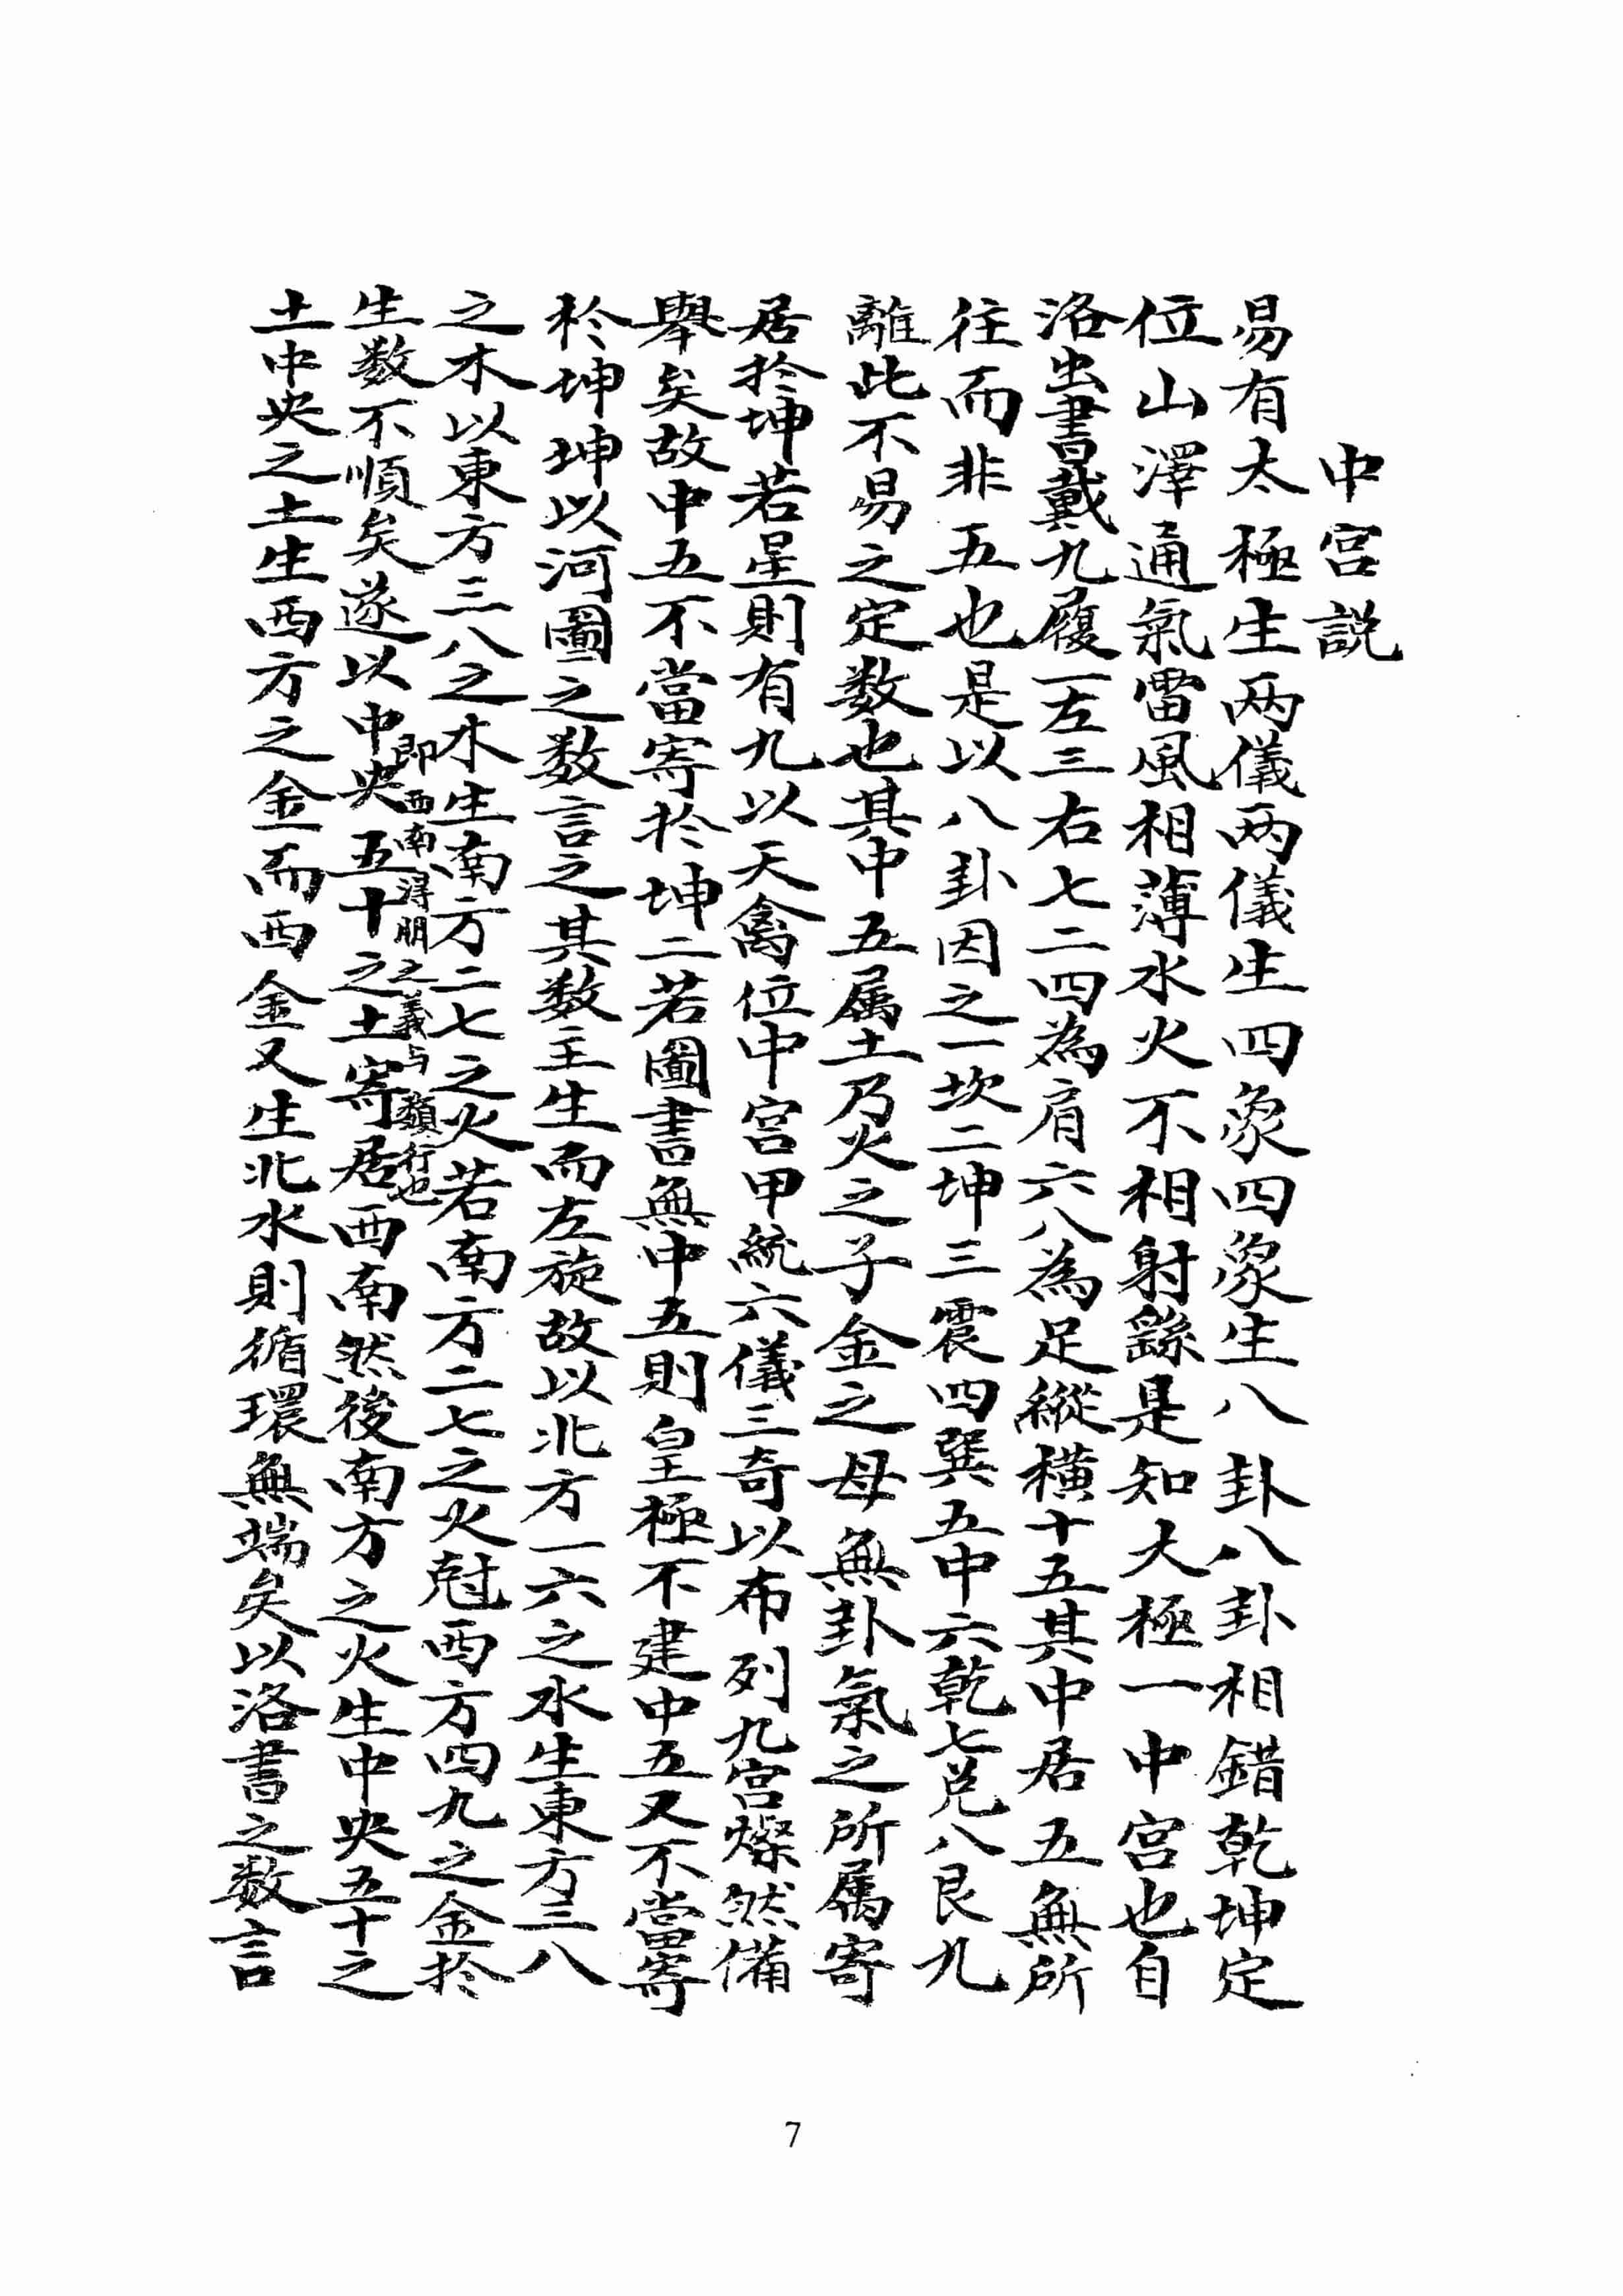 中宮説
易有太極生两儀两儀生四象四象生八卦八卦相錯乾坤定
位山澤通氣雷風相薄水火不相射繇是知大極一中宮也自
洛出書戴九履一左三右七二四為肩六八為足縱横十五其中居五無所
往而非五也是以八卦因之一坎二坤三震四巽五中六乾七兑八艮九
離此不易之定数也其中五属土乃火之子金之母無卦氣之所属寄
居扵坤若星則有九以天禽位中宮甲統六儀三奇以布列九宮燦然備
舉矣故中五不當寄扵坤二若圖書無中五則皇極不建中五又不當寄
扵坤坤以河圖之数言之其数主生而左旋故以北方一六之水生東方三八
之木以東方三八之木生南方二七之火若南方二七之火尅西方四九之金扵
生数不順矣遂以中央五十之土寄居西南然後南方之火生中央五十之
即西南淂朋之義与類行也
土中央之土生西方之金而西金又生北水則循環無端矣以洛書之数言
7